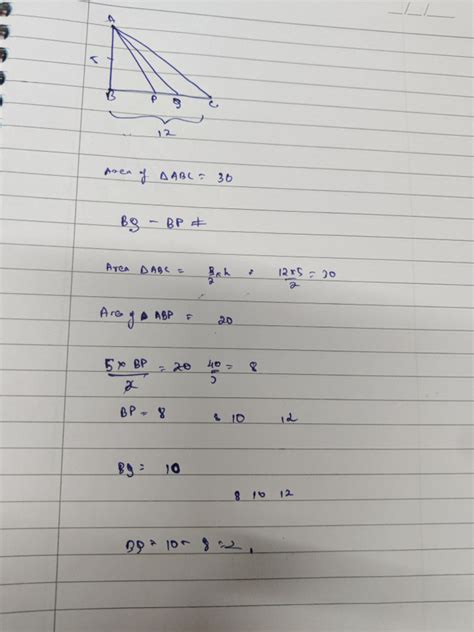 A
5
B P Q C
12
Area of △ABC = 30
BQ - BP ≠
Area △ABC = B×h/2 = 12×5/2 = 30
Area of △ ABP = 20
5 × BP/2 = 20 40/5 = 8
BP = 8 8 10 12
BQ = 10
8 10 12
= 10 - 8 = 2